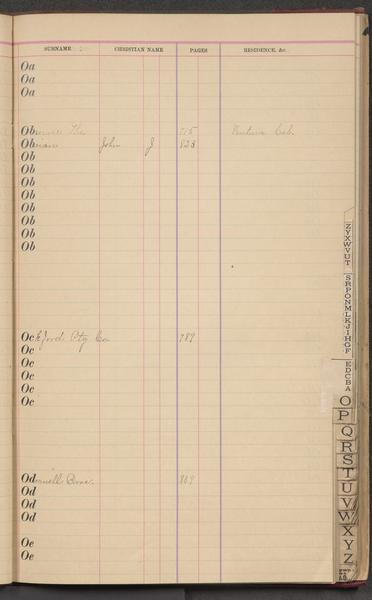 SURNAME CHRISTIAN NAME PAGES RESIDENCE, &c.
Oa
Oa
Oa
Ob The 715 Ventura Cal.
Ob John J 823
Ob
Ob
Ob
Ob
Ob
Ob
Ob
Ob
Oc Ptg Co. 789
Oc
Oc
Oc
Oc
Oc
Od Bros. 809
Od
Od
Od
Oe
Oe
Z Y X W V U T
S R P O N M L K J I H G F
E D C B A
O
P
Q
R
S
T
U
V
W
X
Y
Z